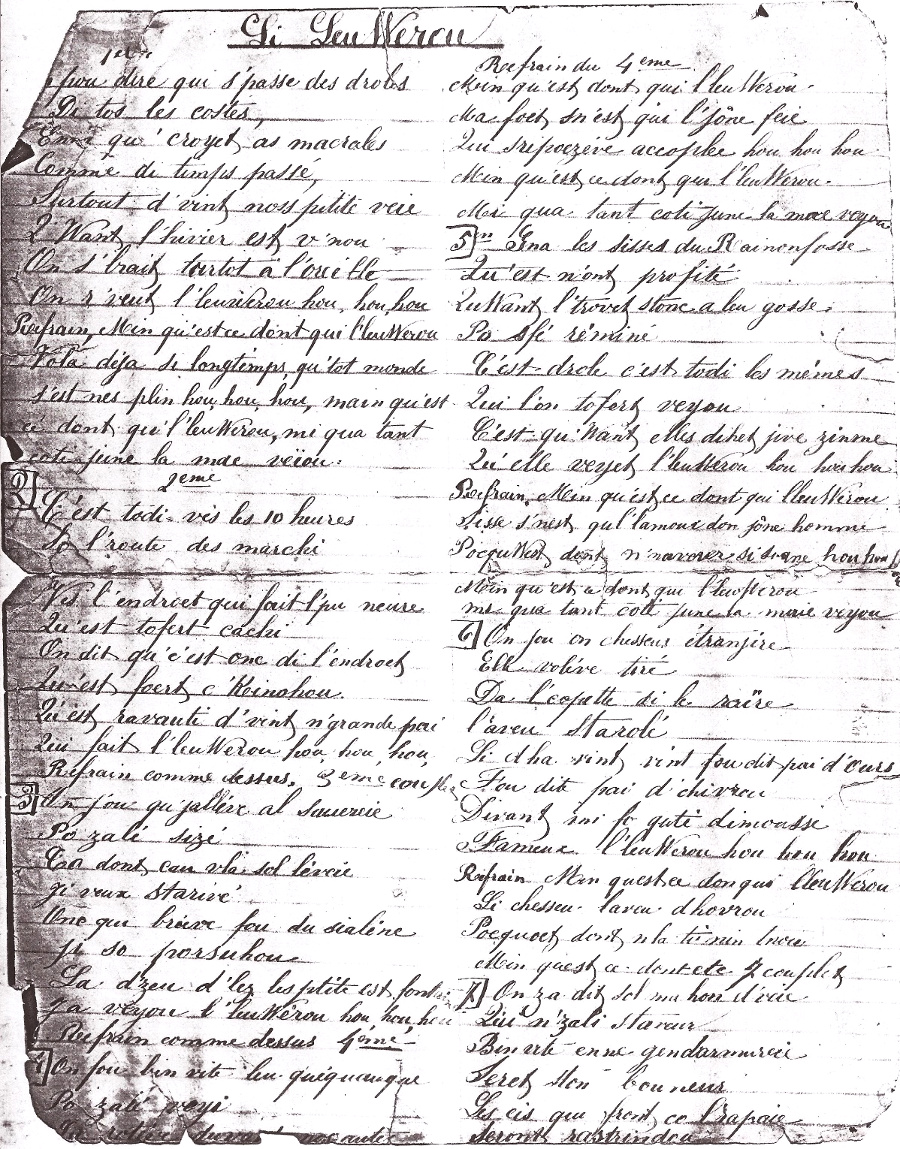 Li Leu Werou
1er
pou dire qui s'passe des droles
Di tos les costés,
Enn qu' croyet as macrales
Comme di timps passé,
Surtout d'vint noss ptite veie
Q'Want l'hivier est v'nou
On s'brait tortot a l'oreille
On r'veut l'leuWerou hou, hou, hou
Refrain, Min qu'est ce dont qui l'leuWerou
Vola déja si longtimps, qu'tot monde
s'est nes plin hou, hou, hou, main qu'est
ce dont qu'l'leuWerou, mi qua tant
coti june la mae veiou.
2eme
2) C'est todi vis les 10 heures
So l'route des marchi
Vis l'endroet qui fait l'pu neure
Qu'est tofert cachi
On dit qu'c'est onc di l'endroet
Qu'est foert c'Koinohou
Qu'est ravauté d'vint n'grande pai
Qui fait l'leuWerou hou, hou, hou,
Refrain comme dessus. 3eme couplet
3) On jou qu'jallève al
Po zali sizé
dont cau vla sol lèveie
Ji veux starivé
Onc qui breve fou du sialène
Ji so porsuhou
La dzeu d'lez les ptite est font
Ja veyou l'leuWerou hou hou, hou
Refrain comme dessus 4ème
4) On jou bin vite leu quéquauque
Po zali veyi
Refrain du 4eme
Min qu'est dont qui l'leuWerou.
Ma foet sn'est qui l'jône feie
Qui accoplee hou hou hou
Min qu'est ce dont qui l'leuWerou.
Mi qua tant coti june la mae veyou
5) en Gna les sisses du Rainonfosse
Qu'est n'ont profité
QuWant l'trovet stone a leu gosse.
Po sfé réminé
C'est drole c'est todi les mêmes
Qui l'on tofert veyou
C'est qu'Want elles dihet jive zinme
Qu'elle veyet l'leuWerou hou hou hou
Refrain. Min qu'est ce dont qui l'leuWerou
Sisse s'nest qu'l'amour don jône homme
PocquWest dont n'navorer si hou hou
Min qu'est ce dont qui l'leuWerou
mi qua tant coti june la maie veyou
6) On jou on chesseur étranjire
Elle volève tiré
Da l'copette di le
l'aveu starolé
Li dha vint vint fou dit pai d'ours
Fou dite pai d'chivrou
Divant mi fo guté dimousse
Fameux l'leuWerou hou hou hou
Refrain Min quest ce don qui l'leuWerou
Li chesseu laveu dhovrou
Pocquoet dont nla
Min quest ce dont ete 7 couplet
7) On za dit sol ma hon d'veie
Qui n'zali staveur
Bin vite enne gendarmireie
Seret ston bonneur
Les cis qui front ce l'rapaie
Seront rastrindou